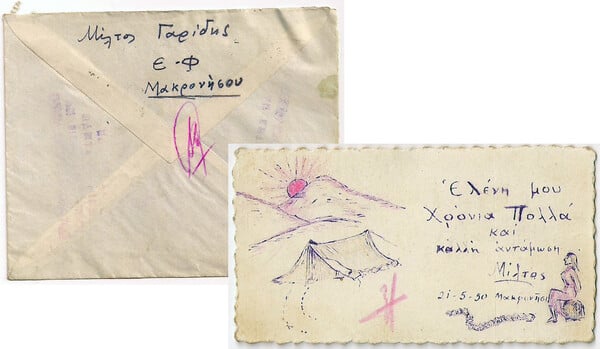 Μίλτος Γαρίδης
Ε-Φ
Μακρονήσου
Ελένη μου
Χρόνια Πολλά
και
καλλή αντάμωση
Μίλτος
21-5-50 Μακρονήσι